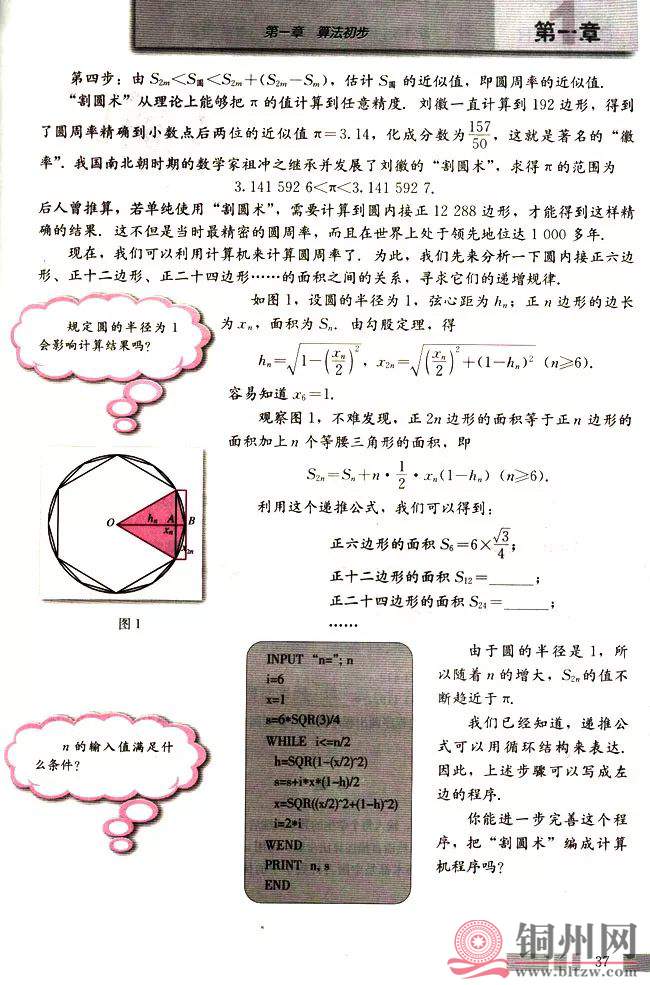 第一章 算法初步
第一章
第四步：由 S₂ₘ＜S圆＜S₂ₘ＋(S₂ₘ－Sₘ)，估计 S圆 的近似值，即圆周率的近似值．
“割圆术”从理论上能够把 π 的值计算到任意精度．刘徽一直计算到 192 边形，得到
了圆周率精确到小数点后两位的近似值 π＝3.14，化成分数为 157/50，这就是著名的“徽
率”．我国南北朝时期的数学家祖冲之继承并发展了刘徽的“割圆术”，求得 π 的范围为
3.141 592 6＜π＜3.141 592 7.
后人曾推算，若单纯使用“割圆术”，需要计算到圆内接正 12 288 边形，才能得到这样精
确的结果．这不但是当时最精密的圆周率，而且在世界上处于领先地位达 1 000 多年．
现在，我们可以利用计算机来计算圆周率了．为此，我们先来分析一下圆内接正六边
形、正十二边形、正二十四边形……的面积之间的关系，寻求它们的递增规律．
规定圆的半径为 1
会影响计算结果吗？
如图 1，设圆的半径为 1，弦心距为 hₙ；正 n 边形的边长
为 xₙ，面积为 Sₙ．由勾股定理，得
hₙ＝√(1－(xₙ/2)²)，x₂ₙ＝√((xₙ/2)²＋(1－hₙ)²) (n≥6).
容易知道 x₆＝1.
观察图 1，不难发现，正 2n 边形的面积等于正 n 边形的
面积加上 n 个等腰三角形的面积，即
S₂ₙ＝Sₙ＋n·1/2·xₙ(1－hₙ) (n≥6).
利用这个递推公式，我们可以得到：
正六边形的面积 S₆＝6×√3/4；
正十二边形的面积 S₁₂＝______；
正二十四边形的面积 S₂₄＝______；
……
O hₙ A B
xₙ
x₂ₙ
图 1
n 的输入值满足什
么条件？
INPUT “n=”; n
i=6
x=1
s=6*SQR(3)/4
WHILE i<=n/2
h=SQR(1-(x/2)^2)
s=s+i*x*(1-h)/2
x=SQR((x/2)^2+(1-h)^2)
i=2*i
WEND
PRINT n, s
END
由于圆的半径是 1，所
以随着 n 的增大，S₂ₙ的值不
断趋近于 π．
我们已经知道，递推公
式可以用循环结构来表达．
因此，上述步骤可以写成左
边的程序．
你能进一步完善这个程
序，把“割圆术”编成计算
机程序吗？
37
铜州网
www.bltzw.com